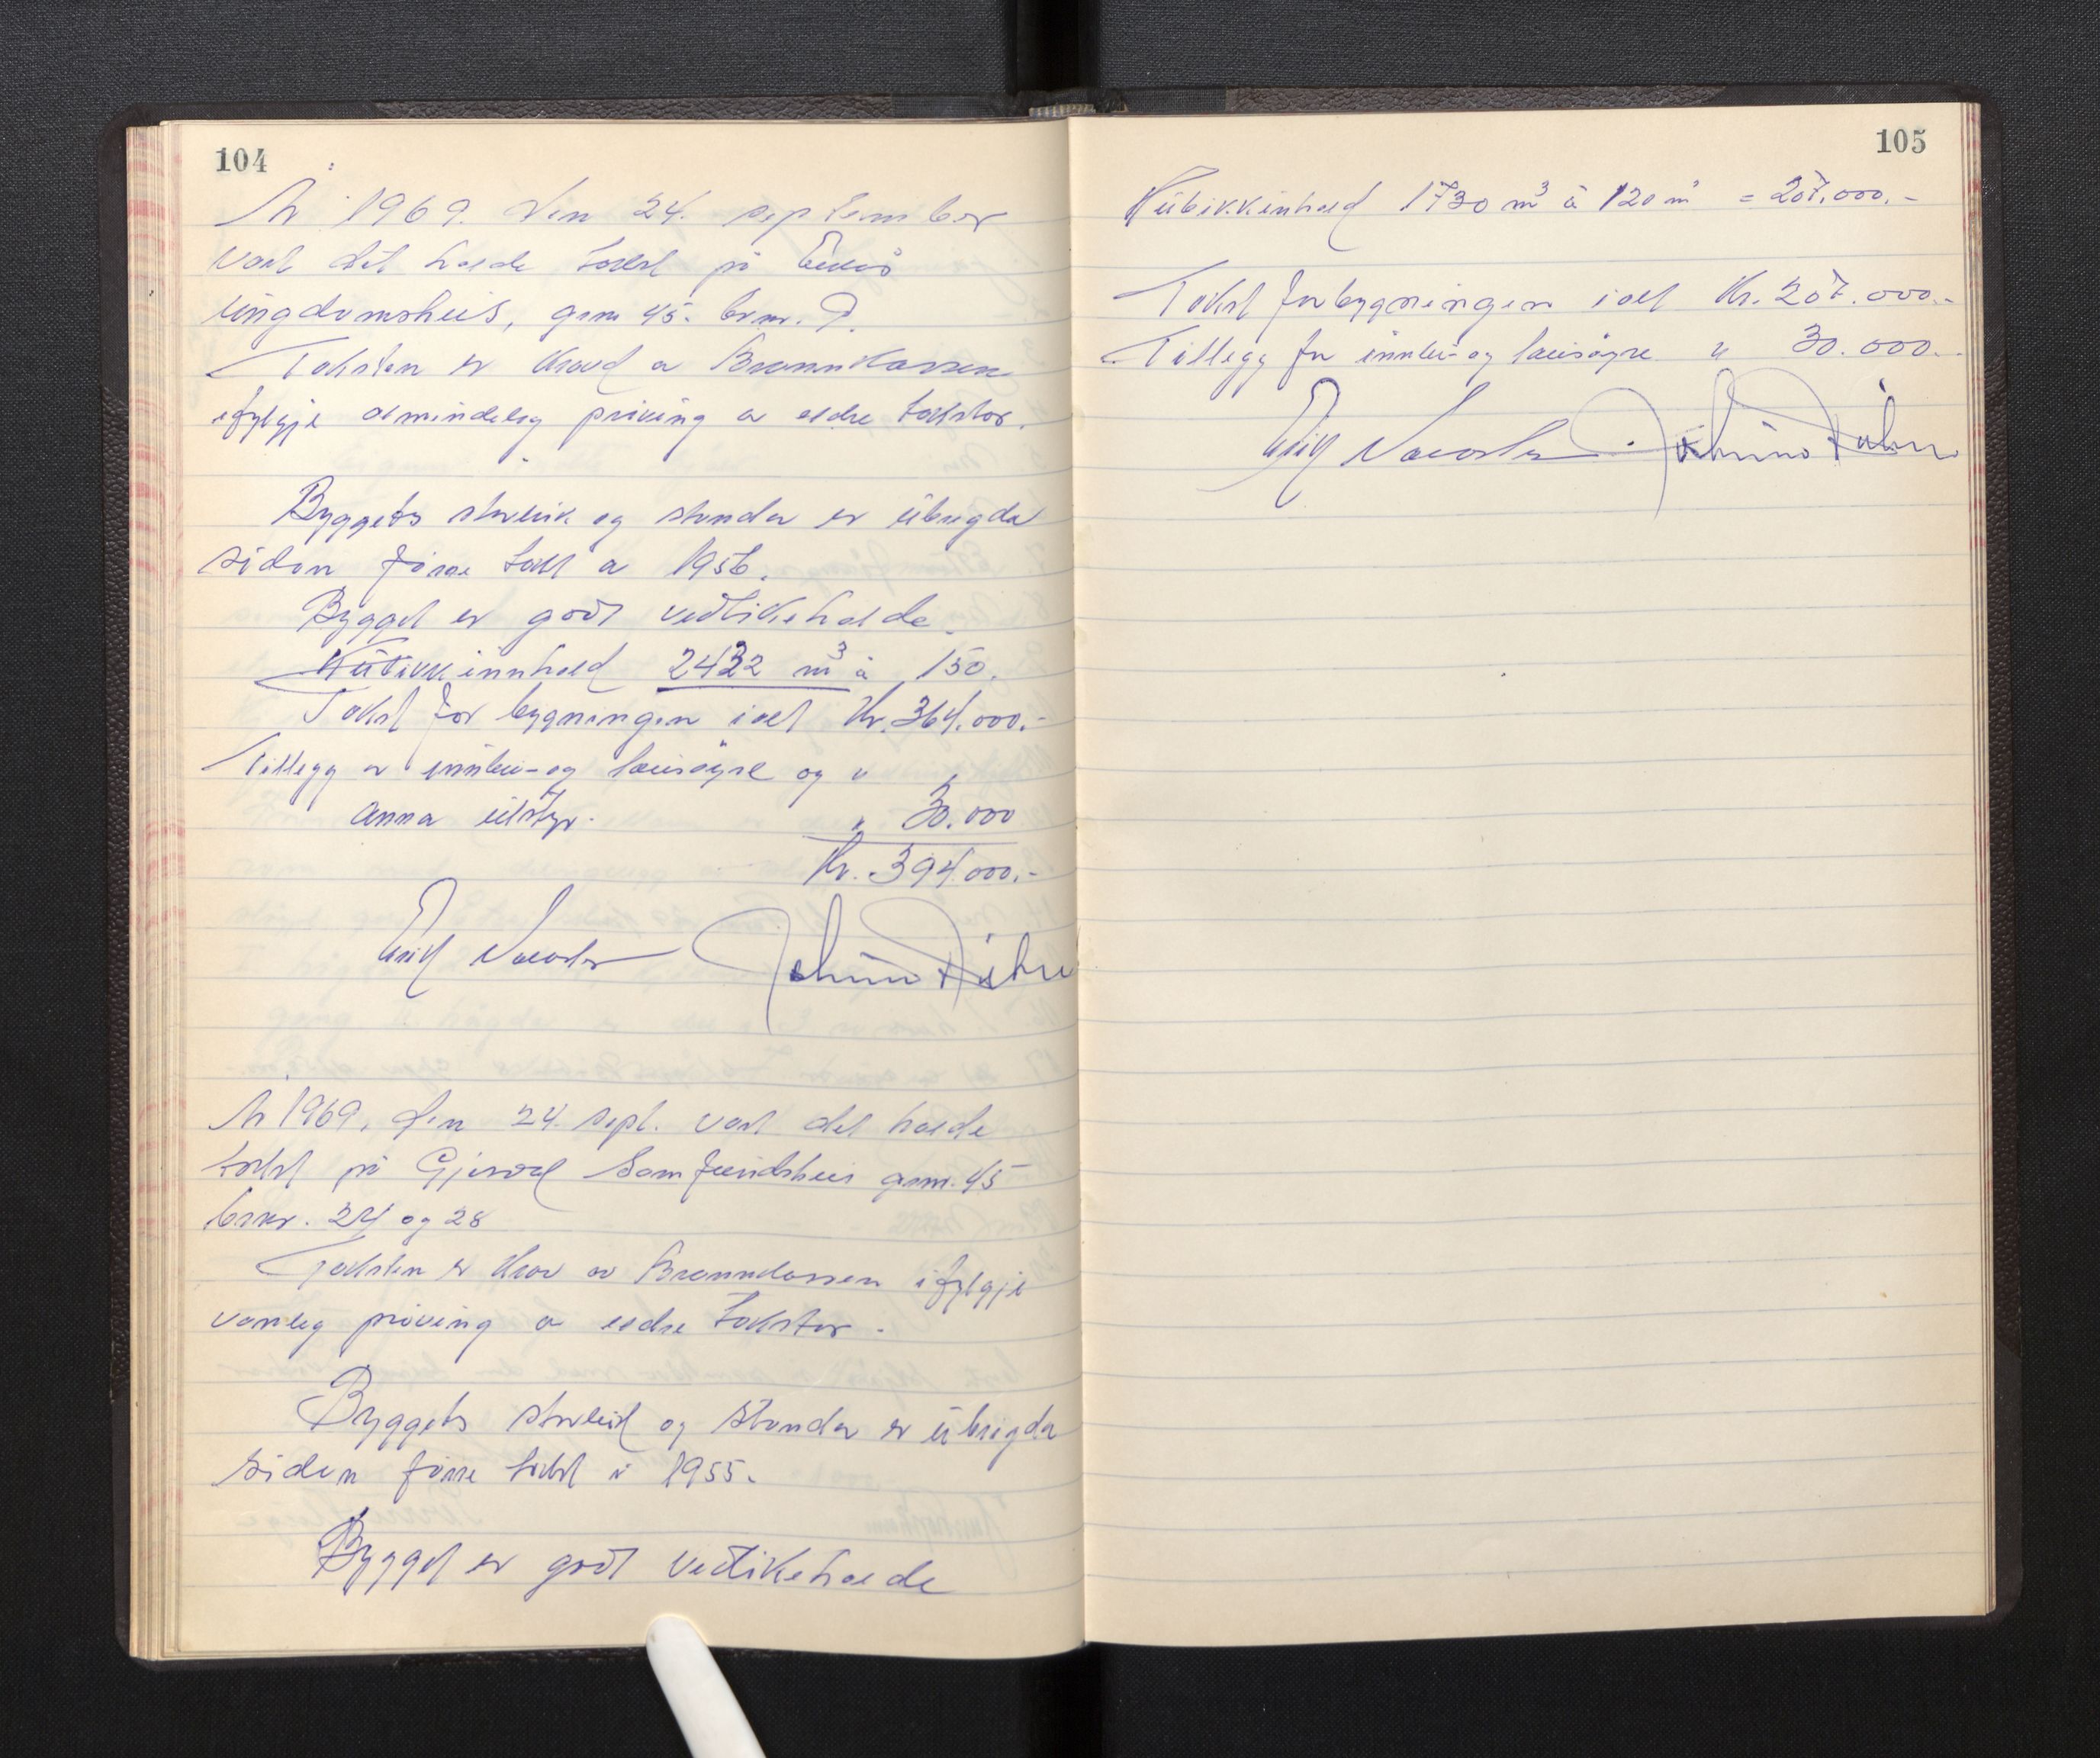 104
År 1969. den 24. september
vart det halde takst på
ungdomshus, gnr. 45. brnr. 9.
Taksten er kravd av Brannkassen
ifylgje almindeleg prøving av eldre takstar.
Byggets storleik og standar er ubrigda
sidan førre takst av 1956.
Bygget er godt vedlikehalde.
Kubikkinnhald 2432 m³ à 150.
Takst for bygningen ialt Kr. 364.000.-
Tillegg av innbu- og lausøyre og "
anna utstyr. " 30.000
Kr. 394.000.-
År 1969, den 24. sept. vart det halde
takst på Gjervål Samfundshus gnr. 45
brnr. 24 og 28
Taksten er krav av Brannkassen ifylgje
vanleg prøving av eldre takstar.
Byggets storleik og standar er ubrigda
sidan førre takst i 1955.
Bygget er godt vedlikehalde
105
Kubikkinhald 1730 m³ à 120 m³ = 207.000.-
Takst for bygningen ialt Kr. 207.000.-
Tillegg for innbu- og lausøyre " 30.000.-